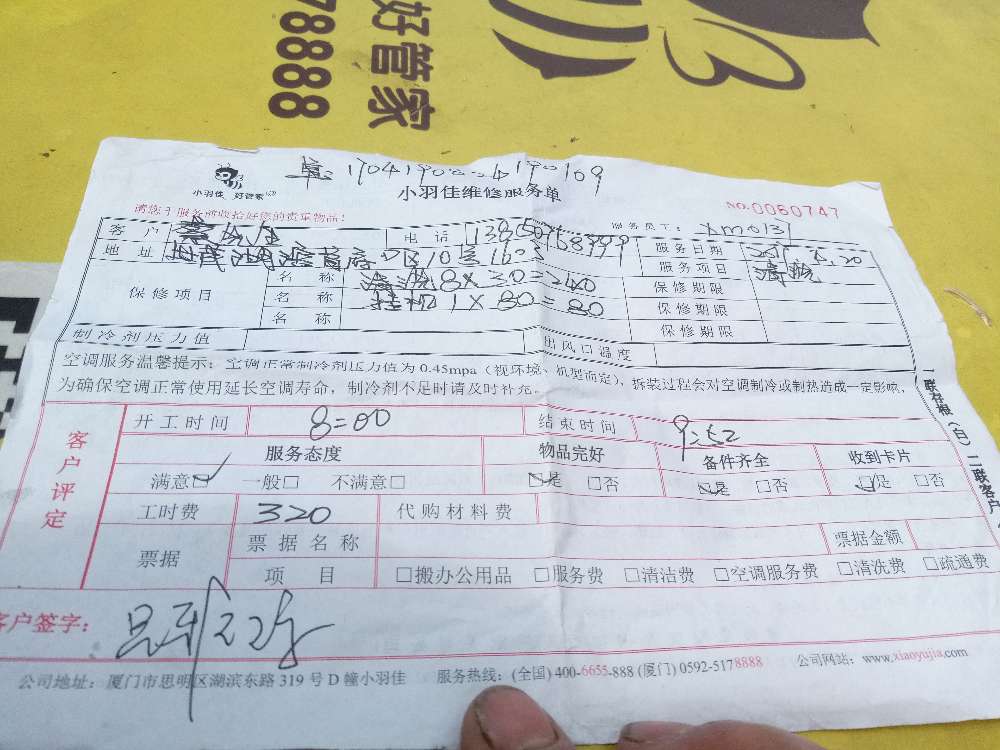 好管家
78888
单: 17041900004190109
小羽佳 好管家
小羽佳维修服务单
请您于服务前收拾好您的贵重物品!
NO.0060747
客 户 电 话 服务员工: xm0131
地 址 服务日期
保修项目 名 称 清洗8X30=240 服务项目 清洗
名 称 挂机1X80=80 保修期限
名 称 保修期限
保修期限
制冷剂压力值 出风口温度
空调服务温馨提示: 空调正常制冷剂压力值为 0.45mpa (视环境、机型而定), 拆装过程会对空调制冷或制热造成一定影响,
为确保空调正常使用延长空调寿命, 制冷剂不足时请及时补充。
一联存根(白) 二联客户
客户评定
开工时间 8=00 结束时间
服务态度 物品完好 备件齐全 收到卡片
满意☑ 一般□ 不满意□ ☑是 □否 ☑是 □否 ☑是 □否
工时费 320 代购材料费
票据 票据名称 票据金额
项 目 □搬办公用品 □服务费 □清洁费 □空调服务费 □清洗费 □疏通费
客户签字:
公司地址: 厦门市思明区湖滨东路 319 号 D 幢小羽佳 服务热线: (全国) 400-6655-888 (厦门) 0592-5178888 公司网站: www.xiaoyujia.com